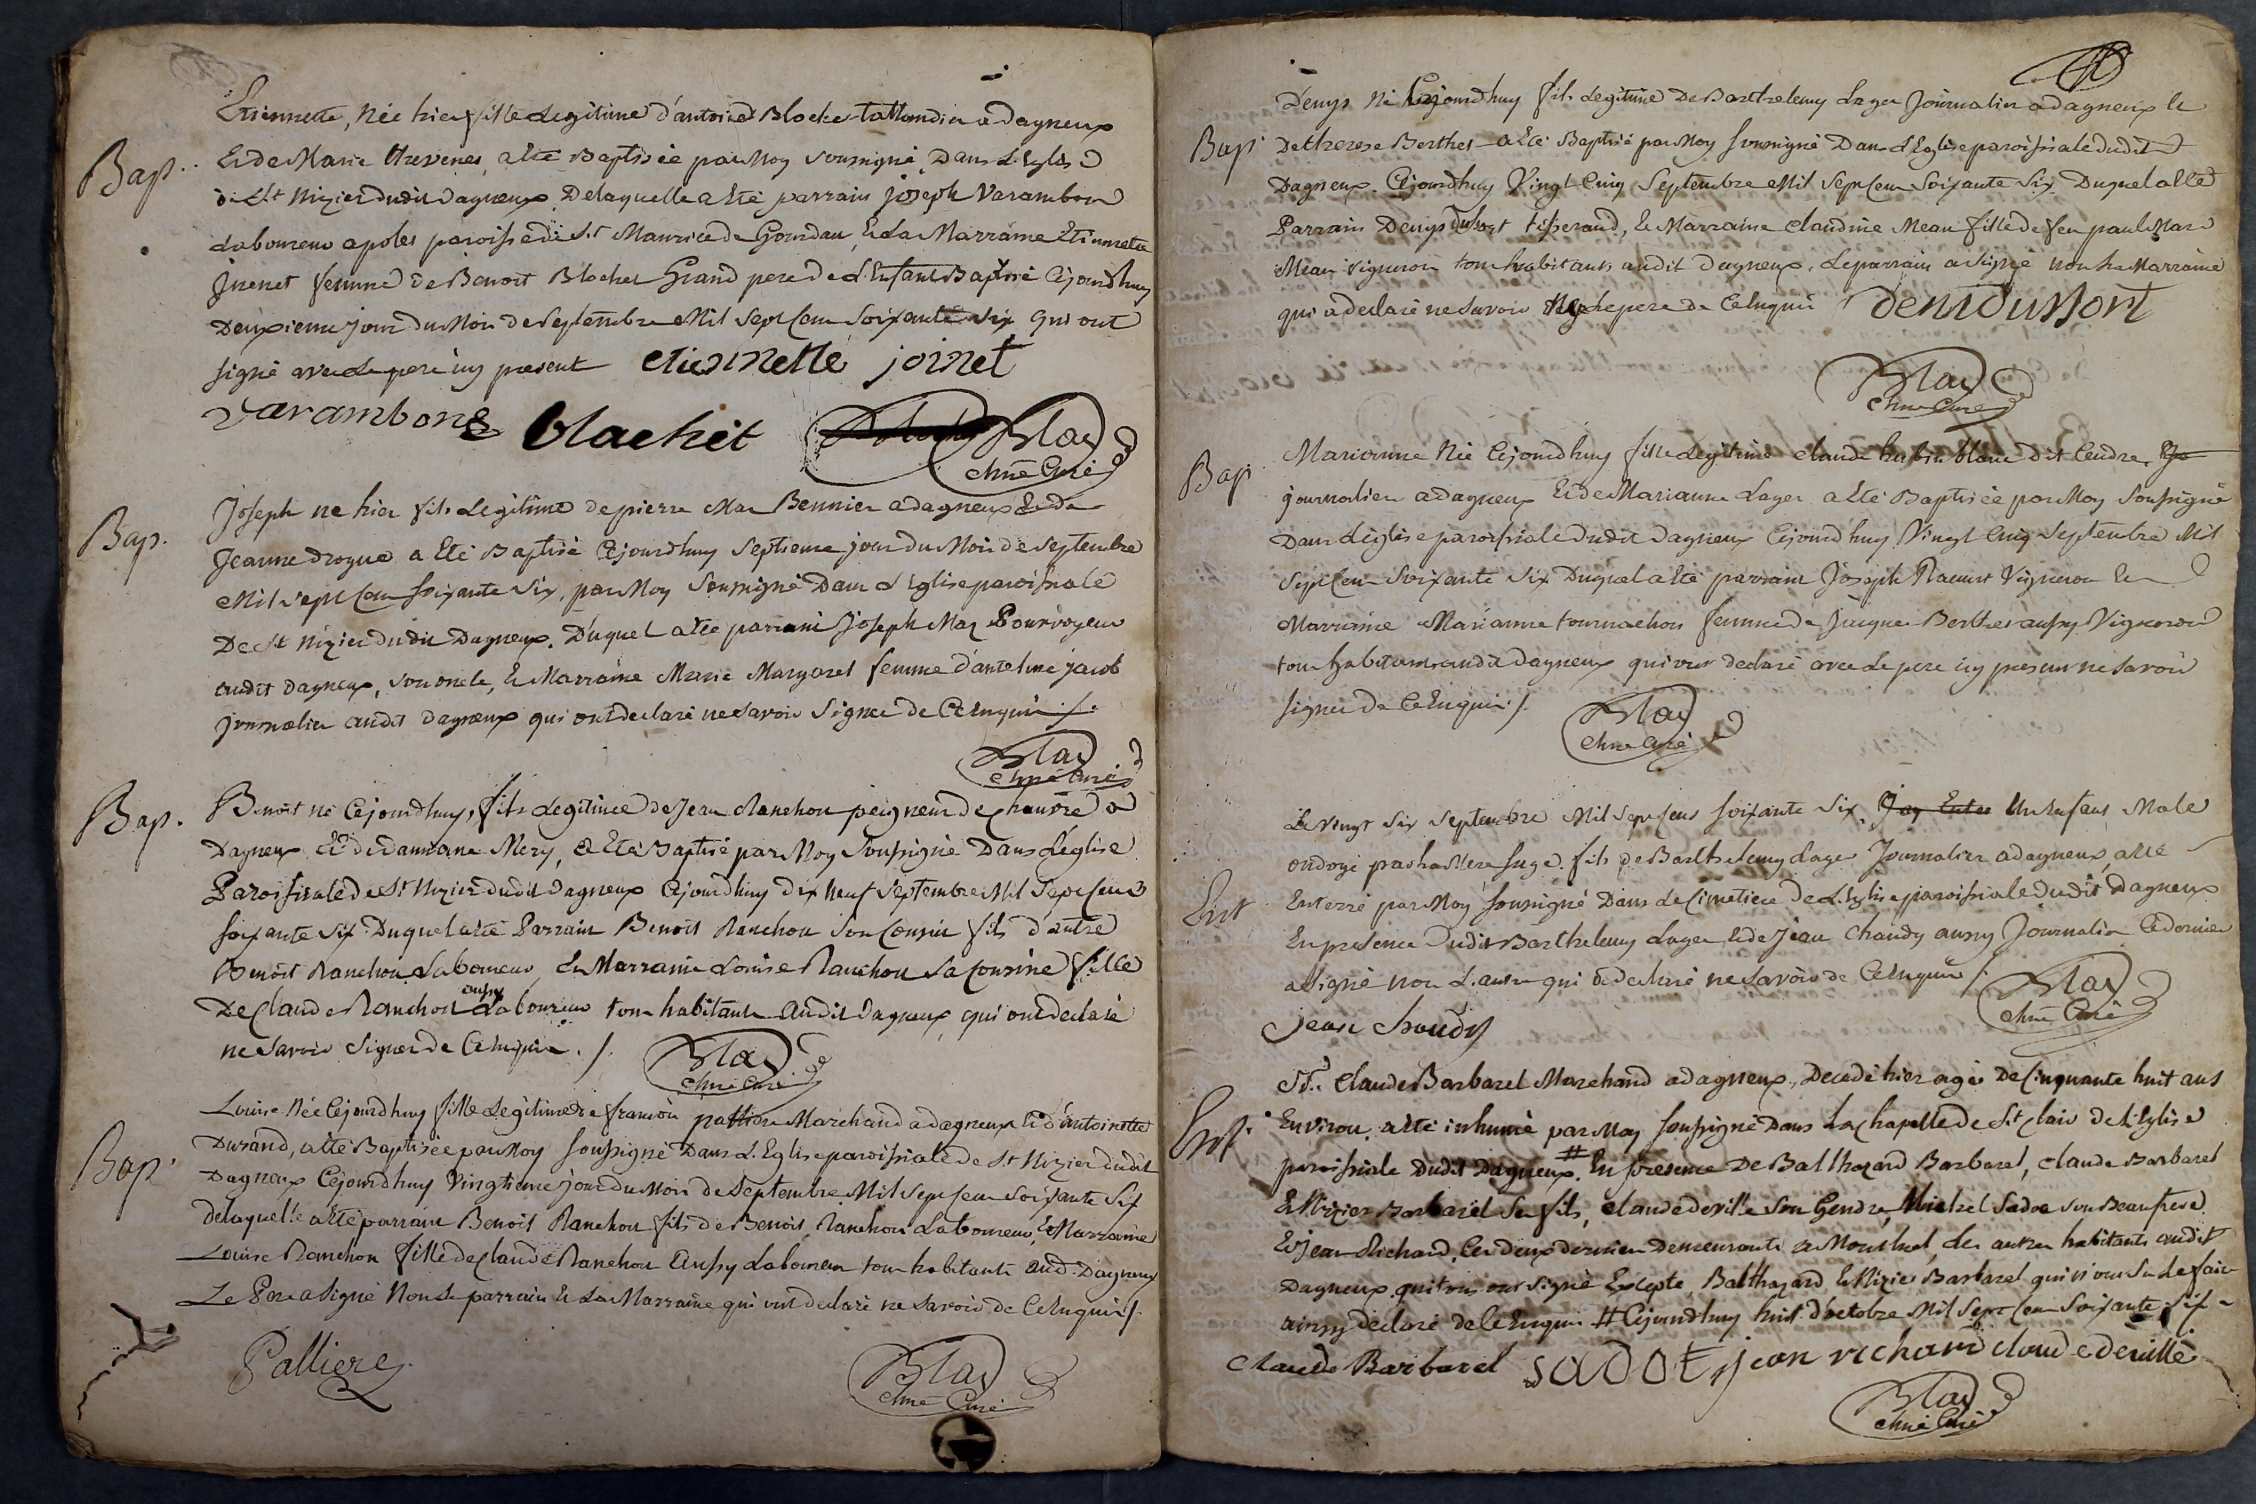 Bap.
Etiennette, Née hier fille Legitime d'antoine Blochet taillandier a dagneux
Et de Marie threvenet, a Eté Baptisée par Moy soussigné, Dans L'Eglise
de St Nizier dudit Dagneux, De laquelle a Eté parrain joseph Varambon
Laboureur a poles paroisse de St Maurice de Gourdan, Et La Marraine Etiennette
Juenet femme de Benoit Blochet Grand pere de L'Enfant Baptisé Cejourdhuy
Deuxieme jour du Mois de Septembre Mil Sept Cent Soixante six qui ont
signé avec Le pere icy present etiennette joinet
varambon blachet Blay
chne Curé
Bap.
Joseph ne hier fils Legitime de pierre Mar Bennier a dagneux Et de
Jeanne drogue a Eté Baptisé Cejourdhuy Septieme jour du Mois de Septembre
Mil sept Cent soixante Six, par Moy Soussigné Dans L'Eglise paroissiale
De St Nizier dudit Dagneux. Duquel a Eté parrain Joseph Mar Pourvoyeur
audit dagneux, son oncle, Et Marraine Marie Margaret femme d'antelme jacob
journalier audit dagneux qui ont declaré ne savoir Signer de Ce Enquis ./.
Blay
chne Curé
Bap.
Benoit né Cejourdhuy, fils Legitime de Jean Ranchon peigneur de Chanvre a
Dagneux Et de Mery, a Eté Baptisé par Moy Soussigné Dans L'église
Paroissiale de St Nizier dudit Dagneux Cejourdhuy dix Neuf Septembre Mil Sept Cent
soixante Six Duquel a Eté Parrain Benoit Ranchon Son Cousin fils d'autre
Benoit Ranchon Laboureur, Et Marraine Louise Ranchon sa Cousine fille
De Claude Ranchon aussy Laboureur tous habitants audit Dagneux qui ont declaré
ne Savoir Signer de Ce Enquis ./.
Blay
chne Curé
Bap.
Louise Née Cejourdhuy fille Legitime de françois pallier Marchand a dagneux Et d'antoinette
Durand, a Eté Baptisée par Moy soussigné Dans L'Eglise paroissiale de St Nizier dudit
Dagneux Cejourdhuy Vingtieme jour du Mois de Septembre Mil Sept Cent Soixante Six
de laquelle a Eté parrain Benoit Ranchon fils de Benoit Ranchon Laboureur, Et Marraine
Louise Ranchon fille de Claude Ranchon Aussy Laboureur tous habitants aud. Dagneux
Le Pere a Signé Non Le parrain Et La Marraine qui ont declaré ne Savoir de Ce Enquis ./.
Palliere
Blay
chne Curé
Bap.
Denys Né Cejourdhuy fils Legitime De Barthelemy Lager Journalier a dagneux Et
De therese Berthet a Eté Baptisé par Moy soussigné Dans L'Eglise paroissiale dudit
Dagneux. Cejourdhuy Vingt Cinq Septembre Mil Sept Cent Soixante Six Duquel a Eté
Parrain Denys dussort tisserand, Et Marraine Claudine Mean fille de feu paul Marc
Mean Vigneron tous habitants audit dagneux. Le parrain a Signé non La Marraine
qui a declaré ne Savoir Ny Le pere de Ce Enquis denidussort
Blay
chne Curé
Bap
Marianne Née Cejourdhuy fille Legitime Claude blanc dit Cendre
journalier a dagneux Et de Marianne Lager a Eté Baptisée par Moy Soussigné
Dans L'église paroissiale dudit Dagneux Cejourdhuy Vingt Cinq Septembre Mil
Sept Cent Soixante Six Duquel a Eté parrain Joseph Vigneron Et
Marraine Marianne tournachon femme de Jacques Berthet aussy Vigneron
tous habitants audit Dagneux qui ont declaré avec Le pere icy present ne savoir
signer de Ce Enquis ./.
Blay
chne Curé
Ent
Le Vingt Six Septembre Mil Sept Cens soixante Six, Jay Enter Un Enfant Male
ondoyé par La Mere Sage. fils de Barthelemy Lager Journalier a dagneux, a Eté
Enterré par Moy soussigné Dans Le Cimetiere de L'Eglise paroissiale dudit Dagneux
En presence dudit Barthelemy Lager Et de Jean Chaudy aussy Journalier Ce dernier
a signé non L'autre qui a declaré ne Savoir de Ce Enquis ./.
Blay
chne Curé
jean Choudy
Ent.
Sr. Claude Barbarel Marchand a dagneux, Decedé hier agé De Cinquante huit ans
Environ, a Eté inhumé par Moy soussigné Dans La Chapelle de St Clair de L'Eglise
paroissiale Dudit Dagneux # En presence De Balthazard Barbarel, Claude Barbarel
Et Nizier Barbarel Ses fils, Claude deville Son Gendre, Michel Sadot son Beaufrere
Et Jean Richard, Ces deux derniers Demeurants a Montluel Les autres habitants audit
Dagneux qui tous ont signé Excepté, Balthazard Et Nizier Barbarel qui n'ont Su Le faire
ainsy declaré de Ce Enquis # Cejourdhuy huit d'octobre Mil Sept Cent Soixante Six
Claude Barbarel SADOT jean richard cloude deville
Blay
chne Curé